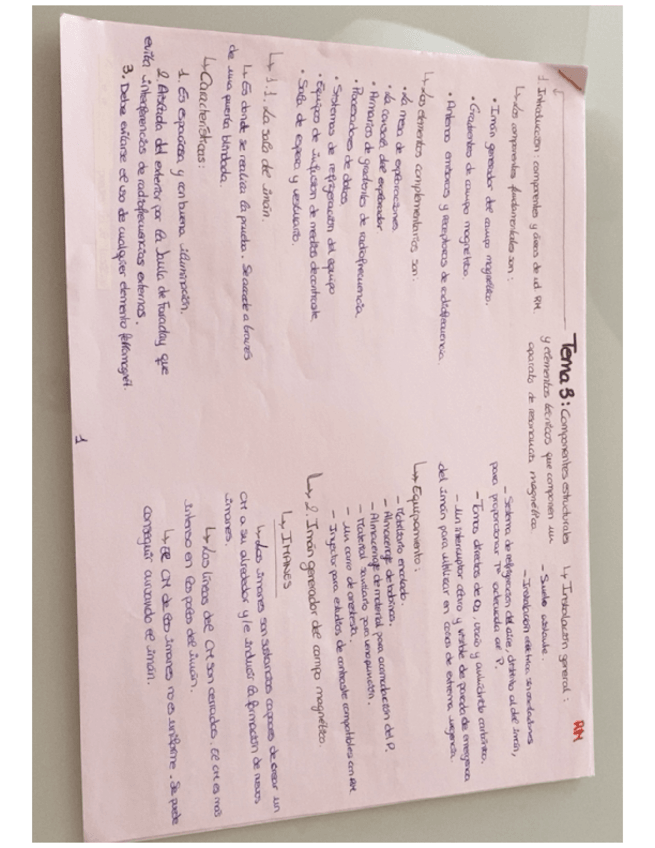 RM
Tema 3: Componentes estructurales
y elementos técnicos que componen un
aparato de resonancia magnética.
1. Introducción: componentes y áreas de ud. RM.
↳ Los componentes fundamentales son:
• Imán generador del campo magnético.
• Gradientes de campo magnético.
• Antenas emisoras y receptoras de radiofrecuencia.
↳ Los elementos complementarios son:
• La mesa de exploraciones
• La consola del explorador
• Armarios de gradientes de radiofrecuencia.
• Procesadores de datos.
• Sistemas de refrigeración del equipo
• Equipos de infusión de medios de contraste.
• Sala de espera y vestuario.
↳ 1.1. La sala de imán.
↳ Es donde se realiza la prueba. Se accede a través
de una puerta blindada.
↳ Características:
1. Es espaciosa y con buena iluminación.
2. Aislada del exterior por la Jaula de Faraday que
evita interferencias de radiofrecuencias externas.
3. Debe evitarse el uso de cualquier elemento ferromagnét.
↳ Instalación general:
- Suelo
- Instalación eléctrica sin oscilaciones
- Sistema de refrigeración del aire, distinto al del imán,
para proporcionar Tª adecuada al P.
- Tomas directas de O2, vacío y anhídrido carbónico.
- Un interruptor claro y visible de parada de emergencia
del imán para utilizar en casos de extrema urgencia.
↳ Equipamiento:
- Mobiliario
- Almacenaje de bobinas.
- Almacenaje de material para acomodación del P.
- Material sanitario para venopunción.
- Un carro de anestesia.
- Inyector para estudios de contraste compatibles con RM
↳ 2. Imán generador del campo magnético.
↳ IMANES
↳ Los imanes son sustancias capaces de crear un
CM a su alrededor y/e inducir la formación de nuevos
imanes.
↳ Las líneas del CM son cerradas. El CM es más
intenso en los polos del imán.
↳ El CM de los imanes no es uniforme. Se puede
conseguir curvando el imán.
1